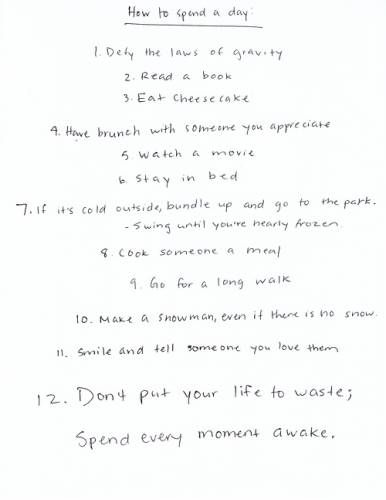 How to spend a day:
1. Defy the laws of gravity
2. Read a book
3. Eat cheesecake
4. Have brunch with someone you appreciate
5. Watch a movie
6. Stay in bed
7. If it's cold outside, bundle up and go to the park.
- Swing until you're nearly frozen
8. Cook someone a meal
9. Go for a long walk
10. Make a snowman, even if there is no snow.
11. Smile and tell someone you love them
12. Don't put your life to waste;
Spend every moment awake.